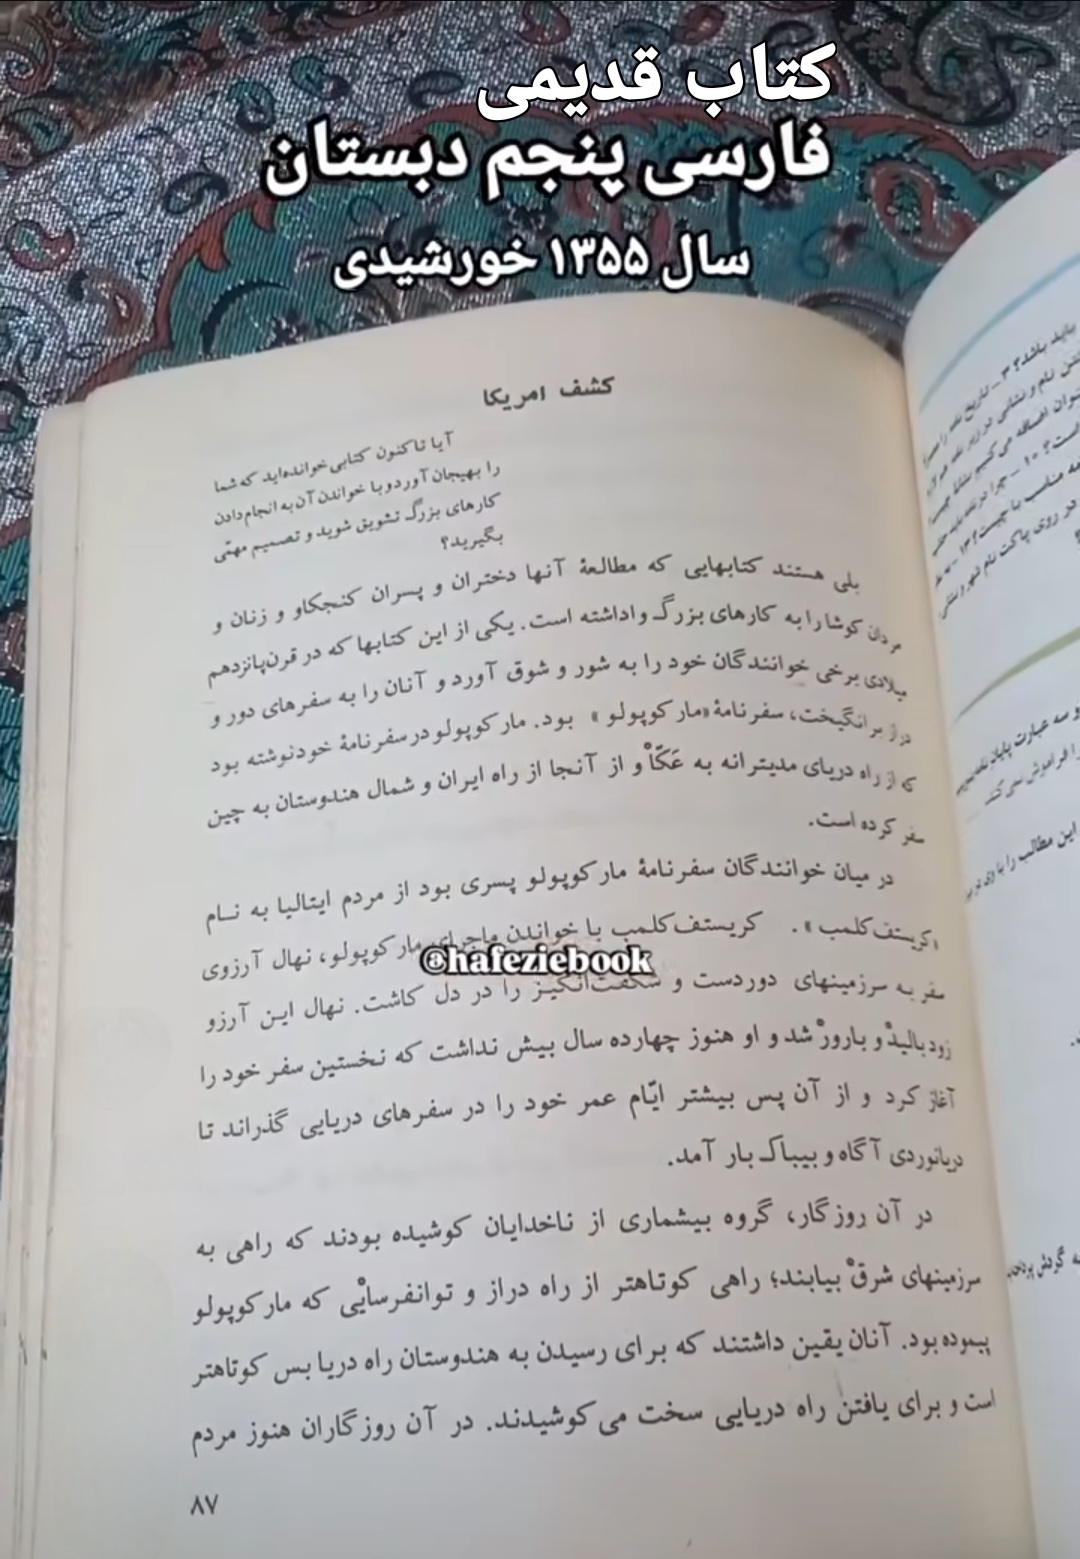 کتاب قدیمی
فارسی پنجم دبستان
سال ۱۳۵۵ خورشیدی
کشف امریکا
آیا تاکنون کتابی خوانده‌اید که شما
را بهیجان آورد و با خواندن آن به انجام دادن
کارهای بزرگ تشویق شوید و تصمیم مهمّی
بگیرید؟
بلی هستند کتابهایی که مطالعهٔ آنها دختران و پسران کنجکاو و زنان و
مردان کوشا را به کارهای بزرگ واداشته است. یکی از این کتابها که در قرن پانزدهم
میلادی برخی خوانندگان خود را به شور و شوق آورد و آنان را به سفرهای دور و
دراز برانگیخت، سفرنامهٔ «مارکوپولو» بود. مارکوپولو در سفرنامهٔ خود نوشته بود
که از راه دریای مدیترانه به عَکّاْ و از آنجا از راه ایران و شمال هندوستان به چین
سفر کرده است.
در میان خوانندگان سفرنامهٔ مارکوپولو پسری بود از مردم ایتالیا به نام
«کریستف کلمب». کریستف کلمب با خواندن ماجرای مارکوپولو، نهال آرزوی
@hafeziebook
سفر به سرزمینهای دوردست و شگفت‌انگیز را در دل کاشت. نهال این آرزو
زود بالیدْ و بارورْ شد و او هنوز چهارده سال بیش نداشت که نخستین سفر خود را
آغاز کرد و از آن پس بیشتر ایّام عمر خود را در سفرهای دریایی گذراند تا
دریانوردی آگاه و بیباک بار آمد.
در آن روزگار، گروه بیشماری از ناخدایان کوشیده بودند که راهی به
سرزمینهای شرقْ بیابند؛ راهی کوتاهتر از راه دراز و توانفرسایْی که مارکوپولو
پیموده بود. آنان یقین داشتند که برای رسیدن به هندوستان راه دریا بس کوتاهتر
است و برای یافتن راه دریایی سخت می‌کوشیدند. در آن روزگاران هنوز مردم
۸۷
باید باشد؟ ۳ - تاریخ نامه را
نام و نشانی در زیر نامه
اضافه می‌کنیم
است؟ ۱۰ - چرا در نامه باید
مناسب با چیست؟ ۱۳ -
در روی پاکت نام شهر و نشانی
و سه عبارت پایان نامه
را فراموش نمی‌کند.
این مطالب را با وی در
گردش